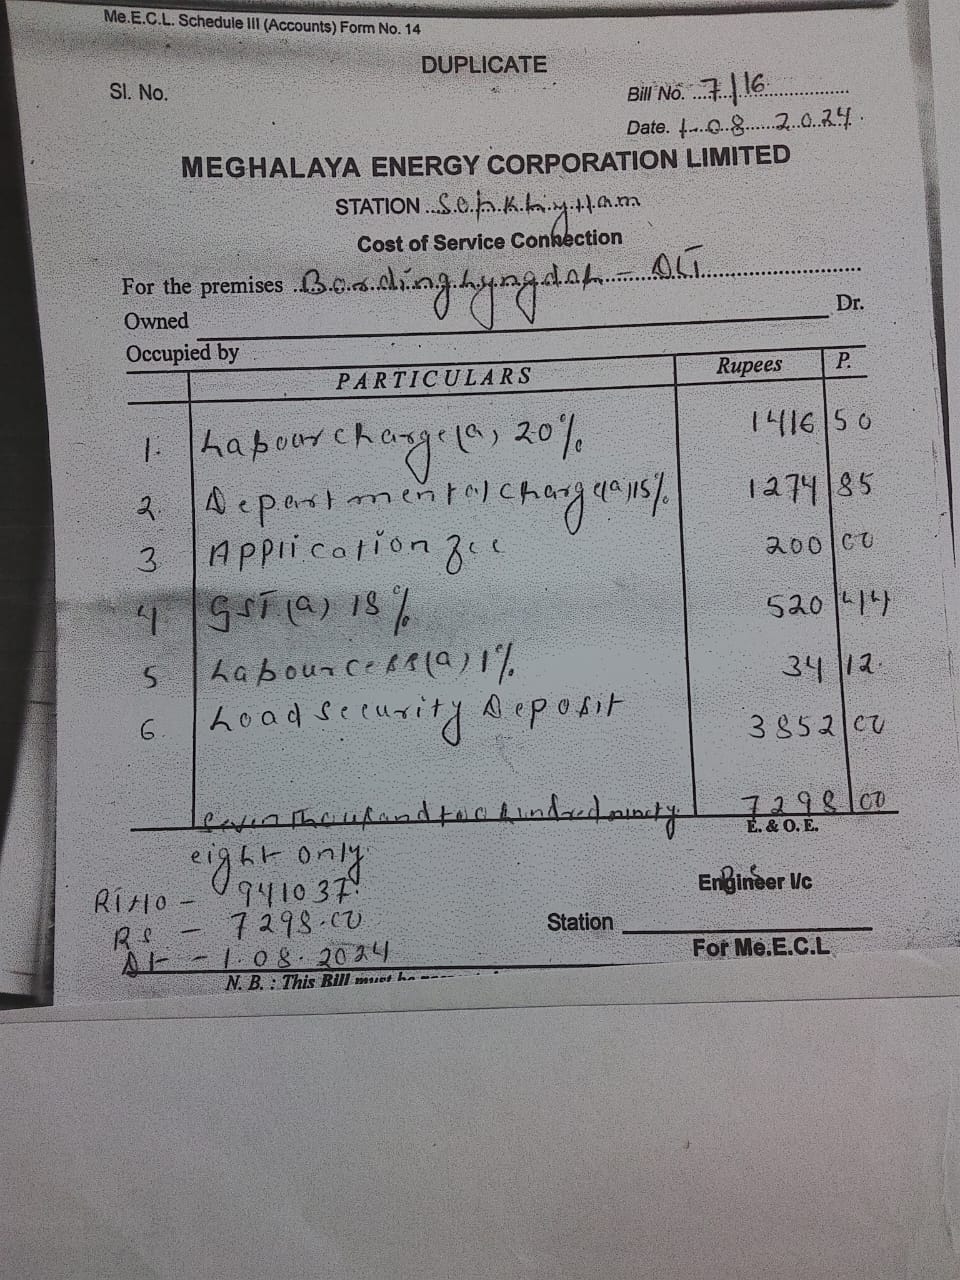 Me.E.C.L. Schedule III (Accounts) Form No. 14
DUPLICATE
Sl. No.
Bill No. 7/16
Date. 1-08-2024
MEGHALAYA ENERGY CORPORATION LIMITED
STATION Sohkhyllam
Cost of Service Connection
For the premises Bordinglyngdoh -
Owned
Dr.
Occupied by
PARTICULARS Rupees P.
1. Labour charge (a) 20% 1416 50
2. Departmental charge (a) 15% 1274 85
3 Application fee 200 00
4. GST (a) 18% 520 44
5 Labour cess (a) 1% 34 12
6. Load Security Deposit 3852 00
Seven Thousand two hundred ninety 7298 00
eight only
E. & O. E.
R/No - 941037
Rs - 7298.00
Dt - 1.08.2024
Engineer I/c
Station
For Me.E.C.L
N. B. : This Bill must be